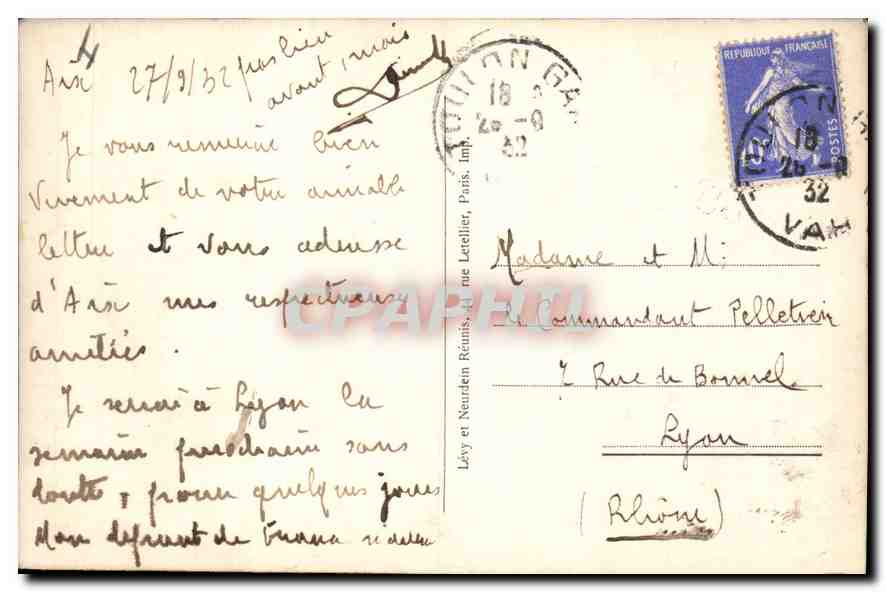 Aix 27/9/32 pas lieu
avant, mais
Je vous remercie bien
vivement de votre aimable
lettre et vous adresse
d'Aix mes respectueuses
amitiés.
Je serai à Lyon la
semaine prochaine sans
doute, pour quelques jours
Mon départ de
Lévy et Neurdein Réunis, 44, rue Letellier, Paris. Imp.
TOULON GA
18
26 -9
32
REPUBLIQUE FRANÇAISE
POSTES
TOULON
18
26 -9
32
VAR
Madame et M:
le Commandant Pelletier
7 Rue de Bonnel
Lyon
(Rhône)
CPAPHIL